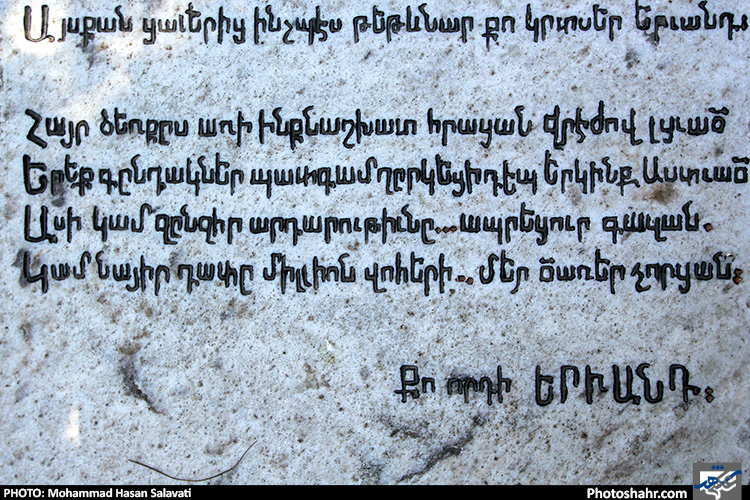 Այսքան ցաւերից ինչպէս թեթևնար քո կրտսեր Երւանդ.
Հայր ձեռքըս առի ինքնաշխատ հրացան վրէժով լցւած
Երեք գընդակներ պատգամ ղըրկեցի դէպ երկինք Աստւած
Ասի կամ զընգիր արդարութիւնը... ապրեցուր գազան.
Կամ նայիր դափը միլիոն զոհերի... մեր ծառեր չորցան:
Քո որդի ԵՐՒԱՆԴ:
PHOTO: Mohammad Hasan Salavati
Photoshahr.com